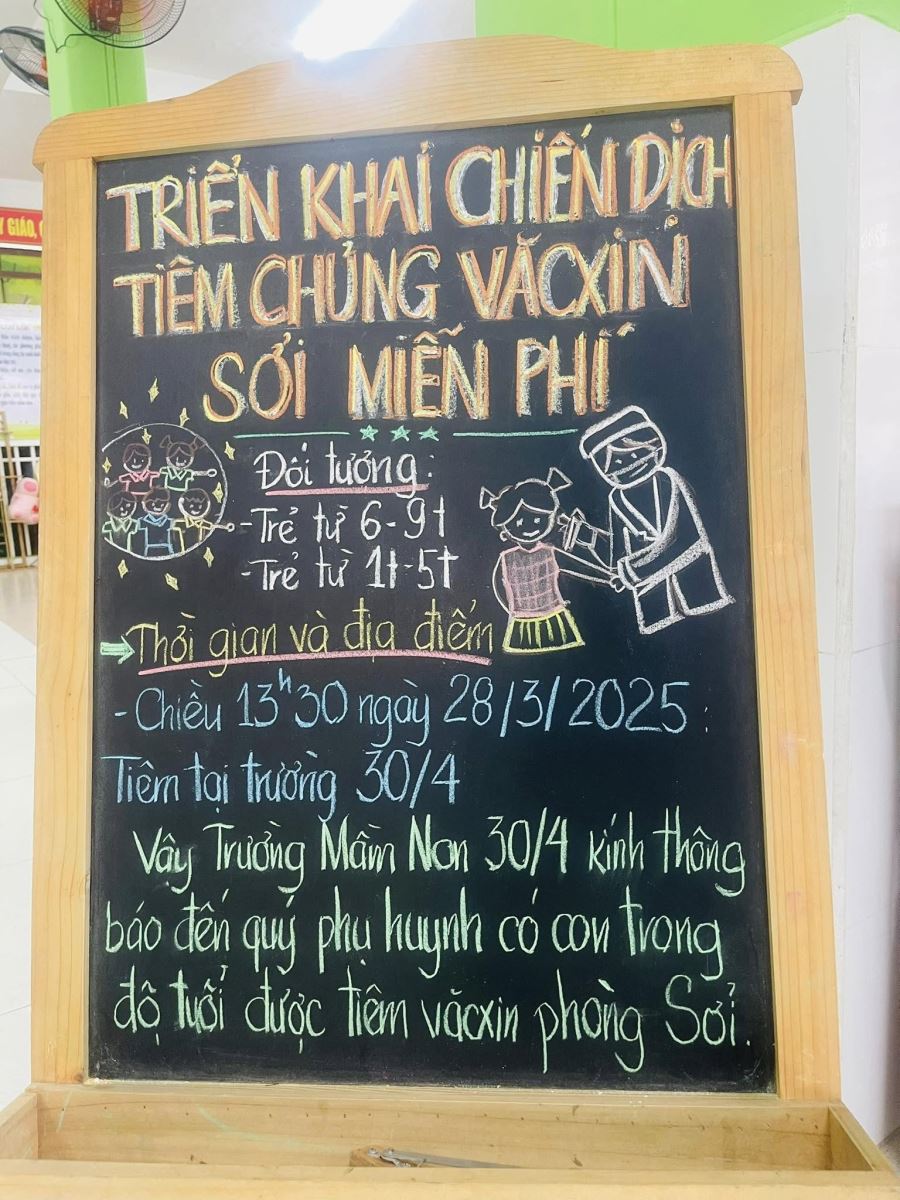 TRIỂN KHAI CHIẾN DỊCH
TIÊM CHỦNG VĂCXIN
SỞI MIỄN PHÍ
Đối tượng:
-Trẻ từ 6-9t
-Trẻ từ 1t-5t
Thời gian và địa điểm
- Chiều 13h30 ngày 28/3/2025:
Tiêm tại trường 30/4
Vậy Trường Mầm Non 30/4 kính thông
báo đến quý phụ huynh có con trong
độ tuổi được tiêm văcxin phòng Sởi.
GIÁO,